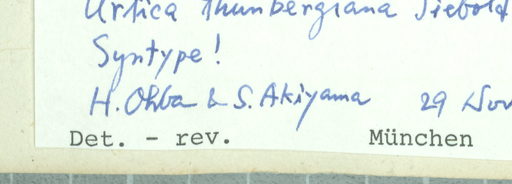 Urtica thunbergiana Siebold
Syntype!
H. Ohba & S. Akiyama 29 Nov
Det. - rev. München